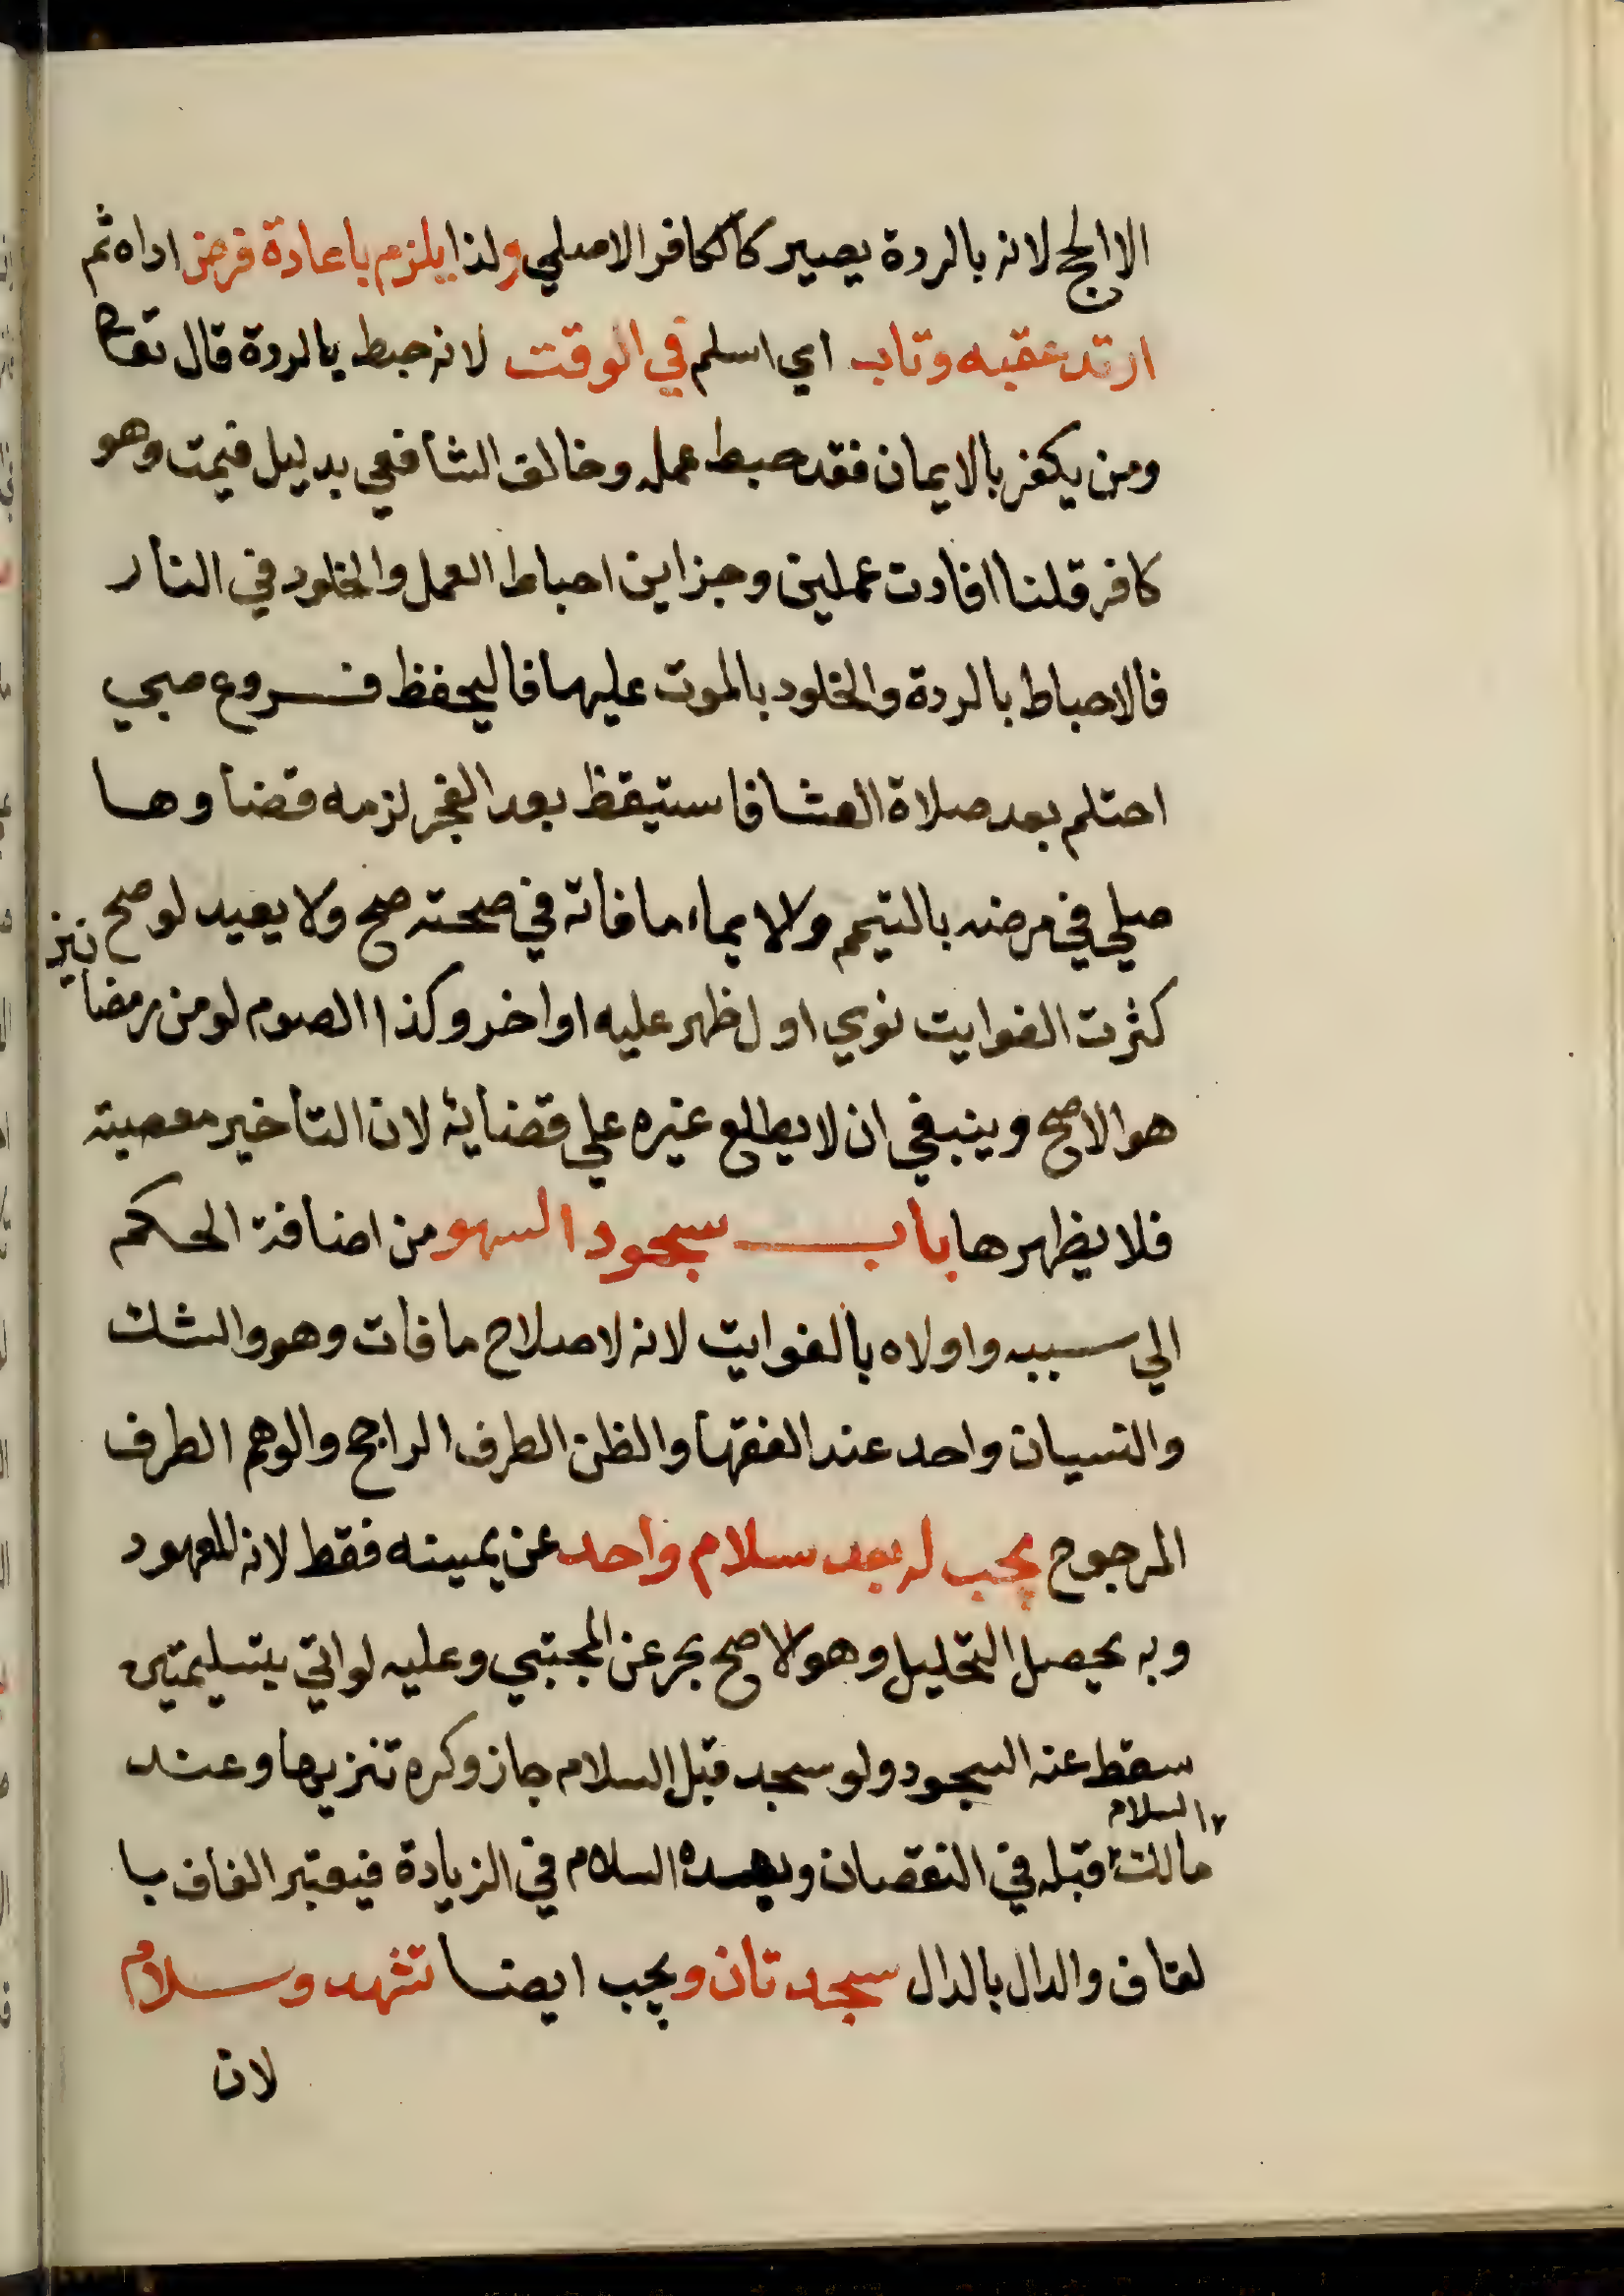 الا الحج لانه بالردة يصير كالكافر الاصلي ولذا يلزم باعادة فرض اداه ثم
ارتد عقبه وتاب اي اسلم في الوقت لانه حبط بالردة قال تعا
ومن يكفر بالايمان فقد حبط عمله وخالف الشافعي بدليل فيمت وهو
كافر قلنا افادت عملين وجزاين احباط العمل والخلود في النار
فالاحباط بالردة والخلود بالموت عليها فاليحفظ فروع صبي
احتلم بعد صلاة العشا فاستيقظ بعد الفجر لزمه قضاوها
صلي في مرضه بالتيمم ولايماء ما فاته في صحته صح ولا يعيد لو صح
كثرت الفوايت نوي اول ظهر عليه او اخر وكذا الصوم لو من رمضا نيز
هو الاصح وينبغي ان لا يطلع غيره علي قضايه لان التاخير معصية
فلا يظهرها باب سجود السهو من اضافة الحكم
الي سببه واولاه بالفوايت لانه لاصلاح ما فات وهو والشك
والنسيان واحد عند الفقها والظن الطرف الراجح والوهم الطرف
المرجوح يجب له بعد سلام واحد عن يمينه فقط لانه المعهود
وبه يحصل التحليل وهو لاصح بحر عن المجتبي وعليه لو اتي بتسليمتين
سقط عنه السجود ولو سجد قبل السلام جاز وكره تنزيها وعند
السلام
مالك قبله في النقصان وبعده السلام في الزيادة فيعتبر القاف با
لقاف والدال بالدال سجدتان ويجب ايضا تشهد وسلام
لان